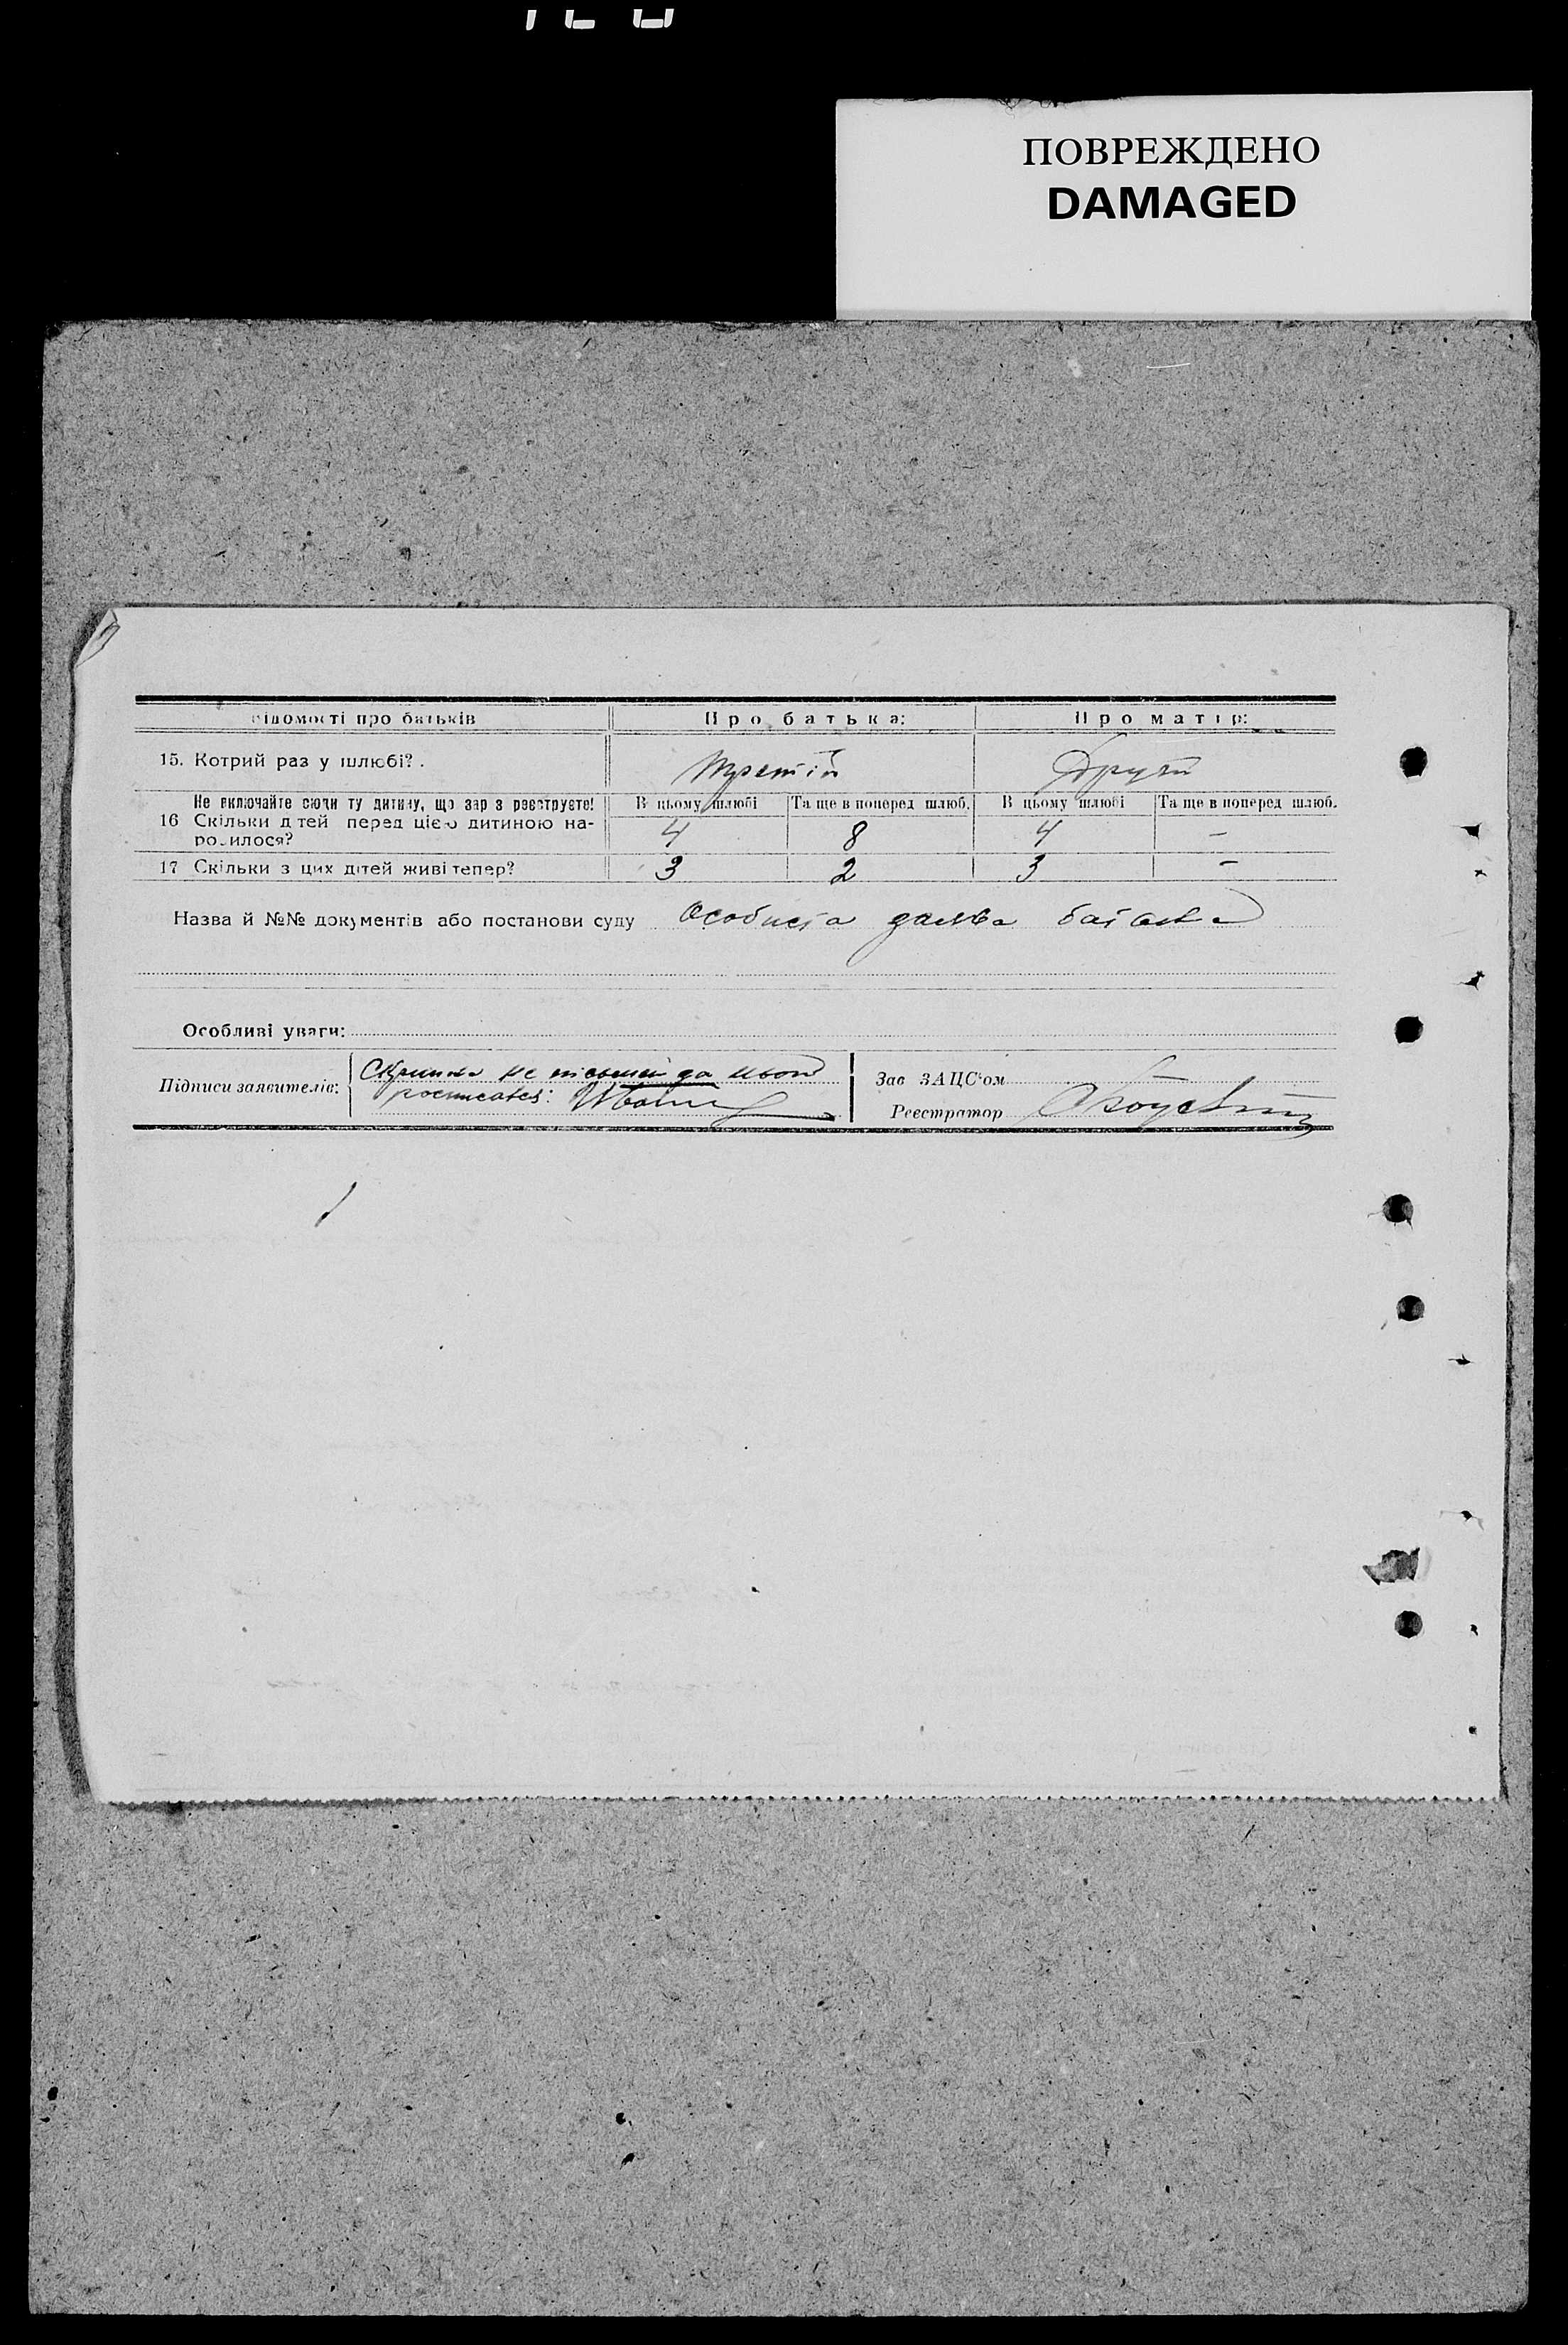 ПОВРЕЖДЕНО
DAMAGED
Відомості про батьків Про батька: Про матір:
15. Котрий раз у шлюбі? . Третій Другий
Не включайте сюди ту дитину, що зараз реєструєте! В цьому шлюбі Та ще в поперед шлюб. В цьому шлюбі Та ще в поперед шлюб.
16 Скільки дітей перед цією дитиною на-
родилося? 4 8 4 –
17 Скільки з цих дітей живі тепер? 3 2 3 –
Назва й №№ документів або постанови суду Особиста заява батька
Особливі уваги:
Підписи заявителів: не письмений за нього
росписався:
Зав ЗАЦС'ом
Реєстратор